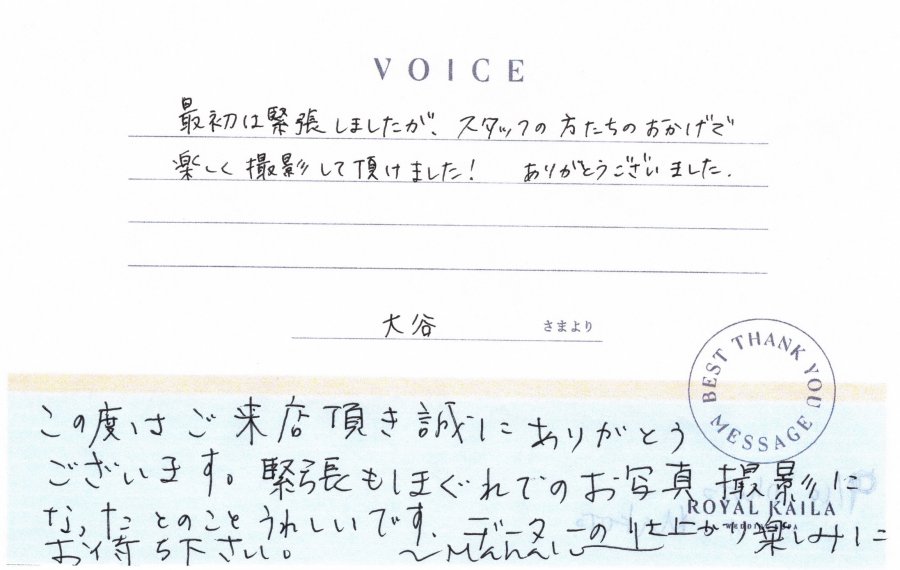 VOICE
最初は緊張しましたが、スタッフの方たちのおかげで
楽しく撮影して頂けました！ ありがとうございました.
大谷 さまより
BEST THANK YOU MESSAGE
この度はご来店頂き誠にありがとう
ございます。緊張もしほぐれてのお写真撮影に
なったとのことうれしいです。データーの仕上がり楽しみに
お待ち下さい。
ROYAL KAILA